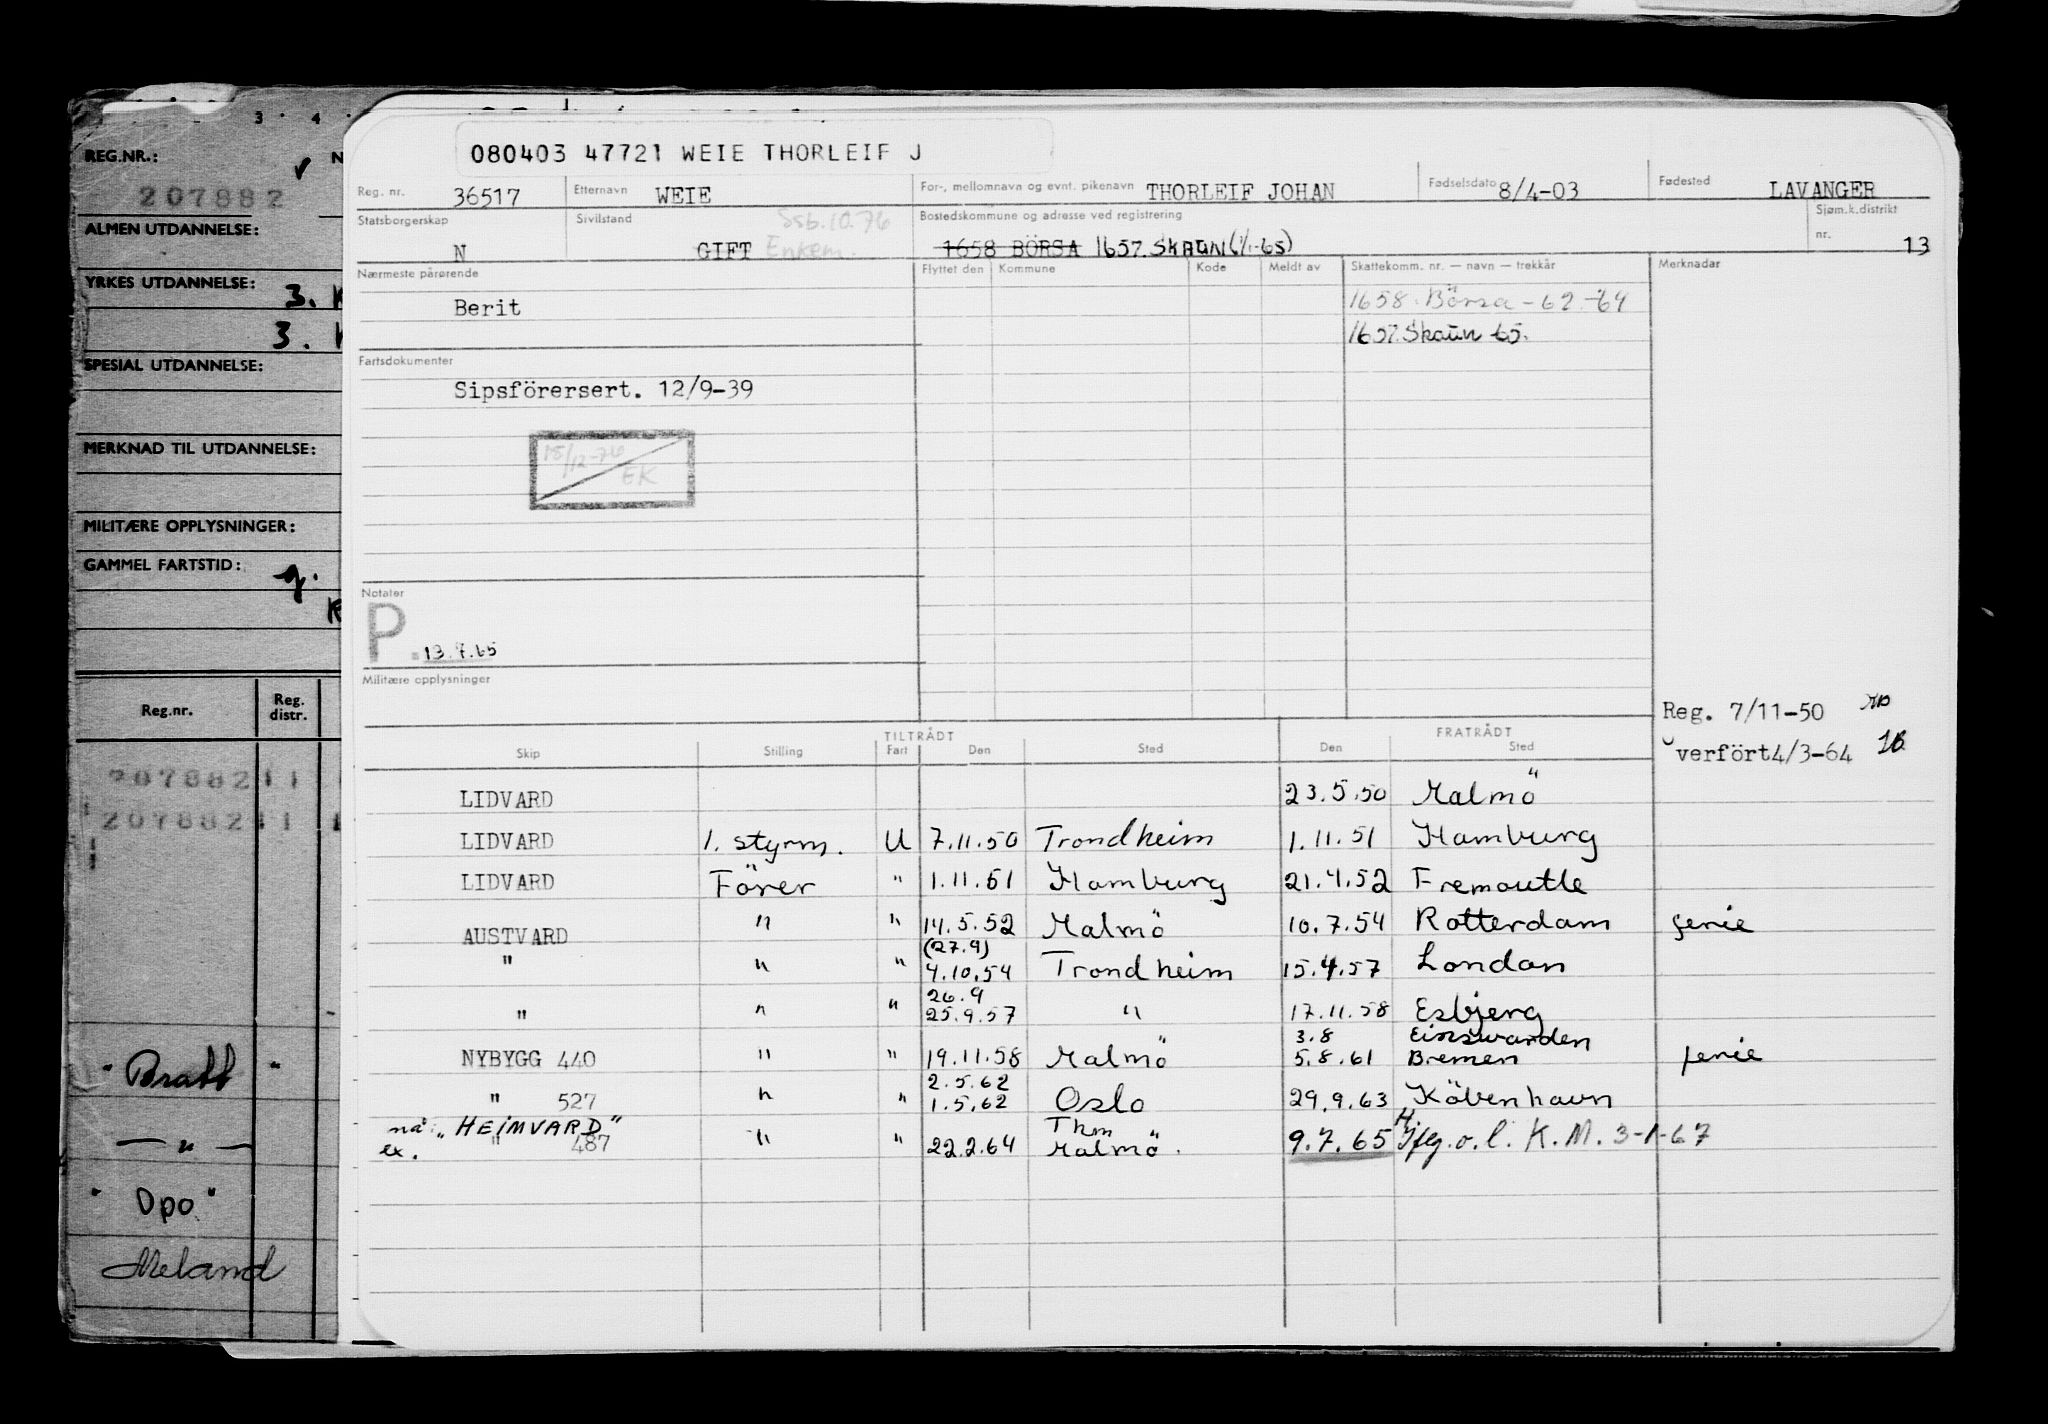 3 4
REG.NR.:
207882
ALMEN UTDANNELSE:
YRKES UTDANNELSE: 3. K
3.
SPESIAL UTDANNELSE:
MERKNAD TIL UTDANNELSE:
MILITÆRE OPPLYSNINGER:
GAMMEL FARTSTID: g.
K
Reg.nr. Reg. distr.
207882 11
207882 11
"Bratt"
— " —
"Opo"
Meland
080403 47721 WEIE THORLEIF J
Reg. nr. 36517 Etternavn WEIE For-, mellomnavn og evnt. pikenavn THORLEIF JOHAN Fødselsdato 8/4-03 Fødested LAVANGER
Statsborgerskap Sivilstand Ssb.10.76 Bostedskommune og adresse ved registrering Sjøm.k.distrikt
N GIFT Enkem. 1658 BÖRSA 1657 SKAUN (1/1-65) nr. 13
Nærmeste pårørende Flyttet den Kommune Kode Meldt av Skattekomm. nr. — navn — trekkår Merknadar
Berit 1658. Börsa -62 -64
1657 Skaun 65.
Fartsdokumenter
Sipsförersert. 12/9-39
15/12-76
EK
Notater
P. 13.7.65
Militære opplysninger
Reg. 7/11-50
verfört4/3-64
TILTRÅDT FRATRÅDT
Skip Stilling Fart Den Sted Den Sted
LIDVARD 23.5.50 Malmö
LIDVARD 1. styrm. U 7.11.50 Trondheim 1.11.51 Hamburg
LIDVARD Förer " 1.11.51 Hamburg 21.4.52 Fremoutle
AUSTVARD " " 14.5.52 Malmö 10.7.54 Rotterdam ferie
(27.9)
" " " 4.10.54 Trondheim 15.4.57 London
26.9
" " " 25.9.57 " 17.11.58 Esbjerg
3.8 Einswarden
NYBYGG 440 " " 19.11.58 Malmö 5.8.61 Bremen ferie
2.5.62
" 527 " " 1.5.62 Oslo 29.9.63 Köbenhavn
nå: "HEIMVARD" Thm
ex. " 487 " " 22.2.64 Malmö. 9.7.65 Hjfg.o.l. K.M. 3-1-67